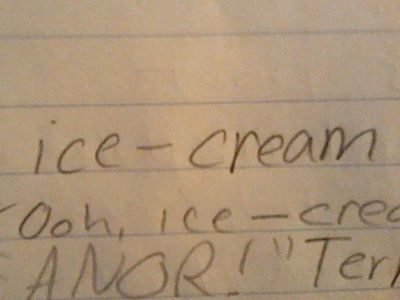 ice-cream
Ooh, ice-crea
ANOR!" Ter